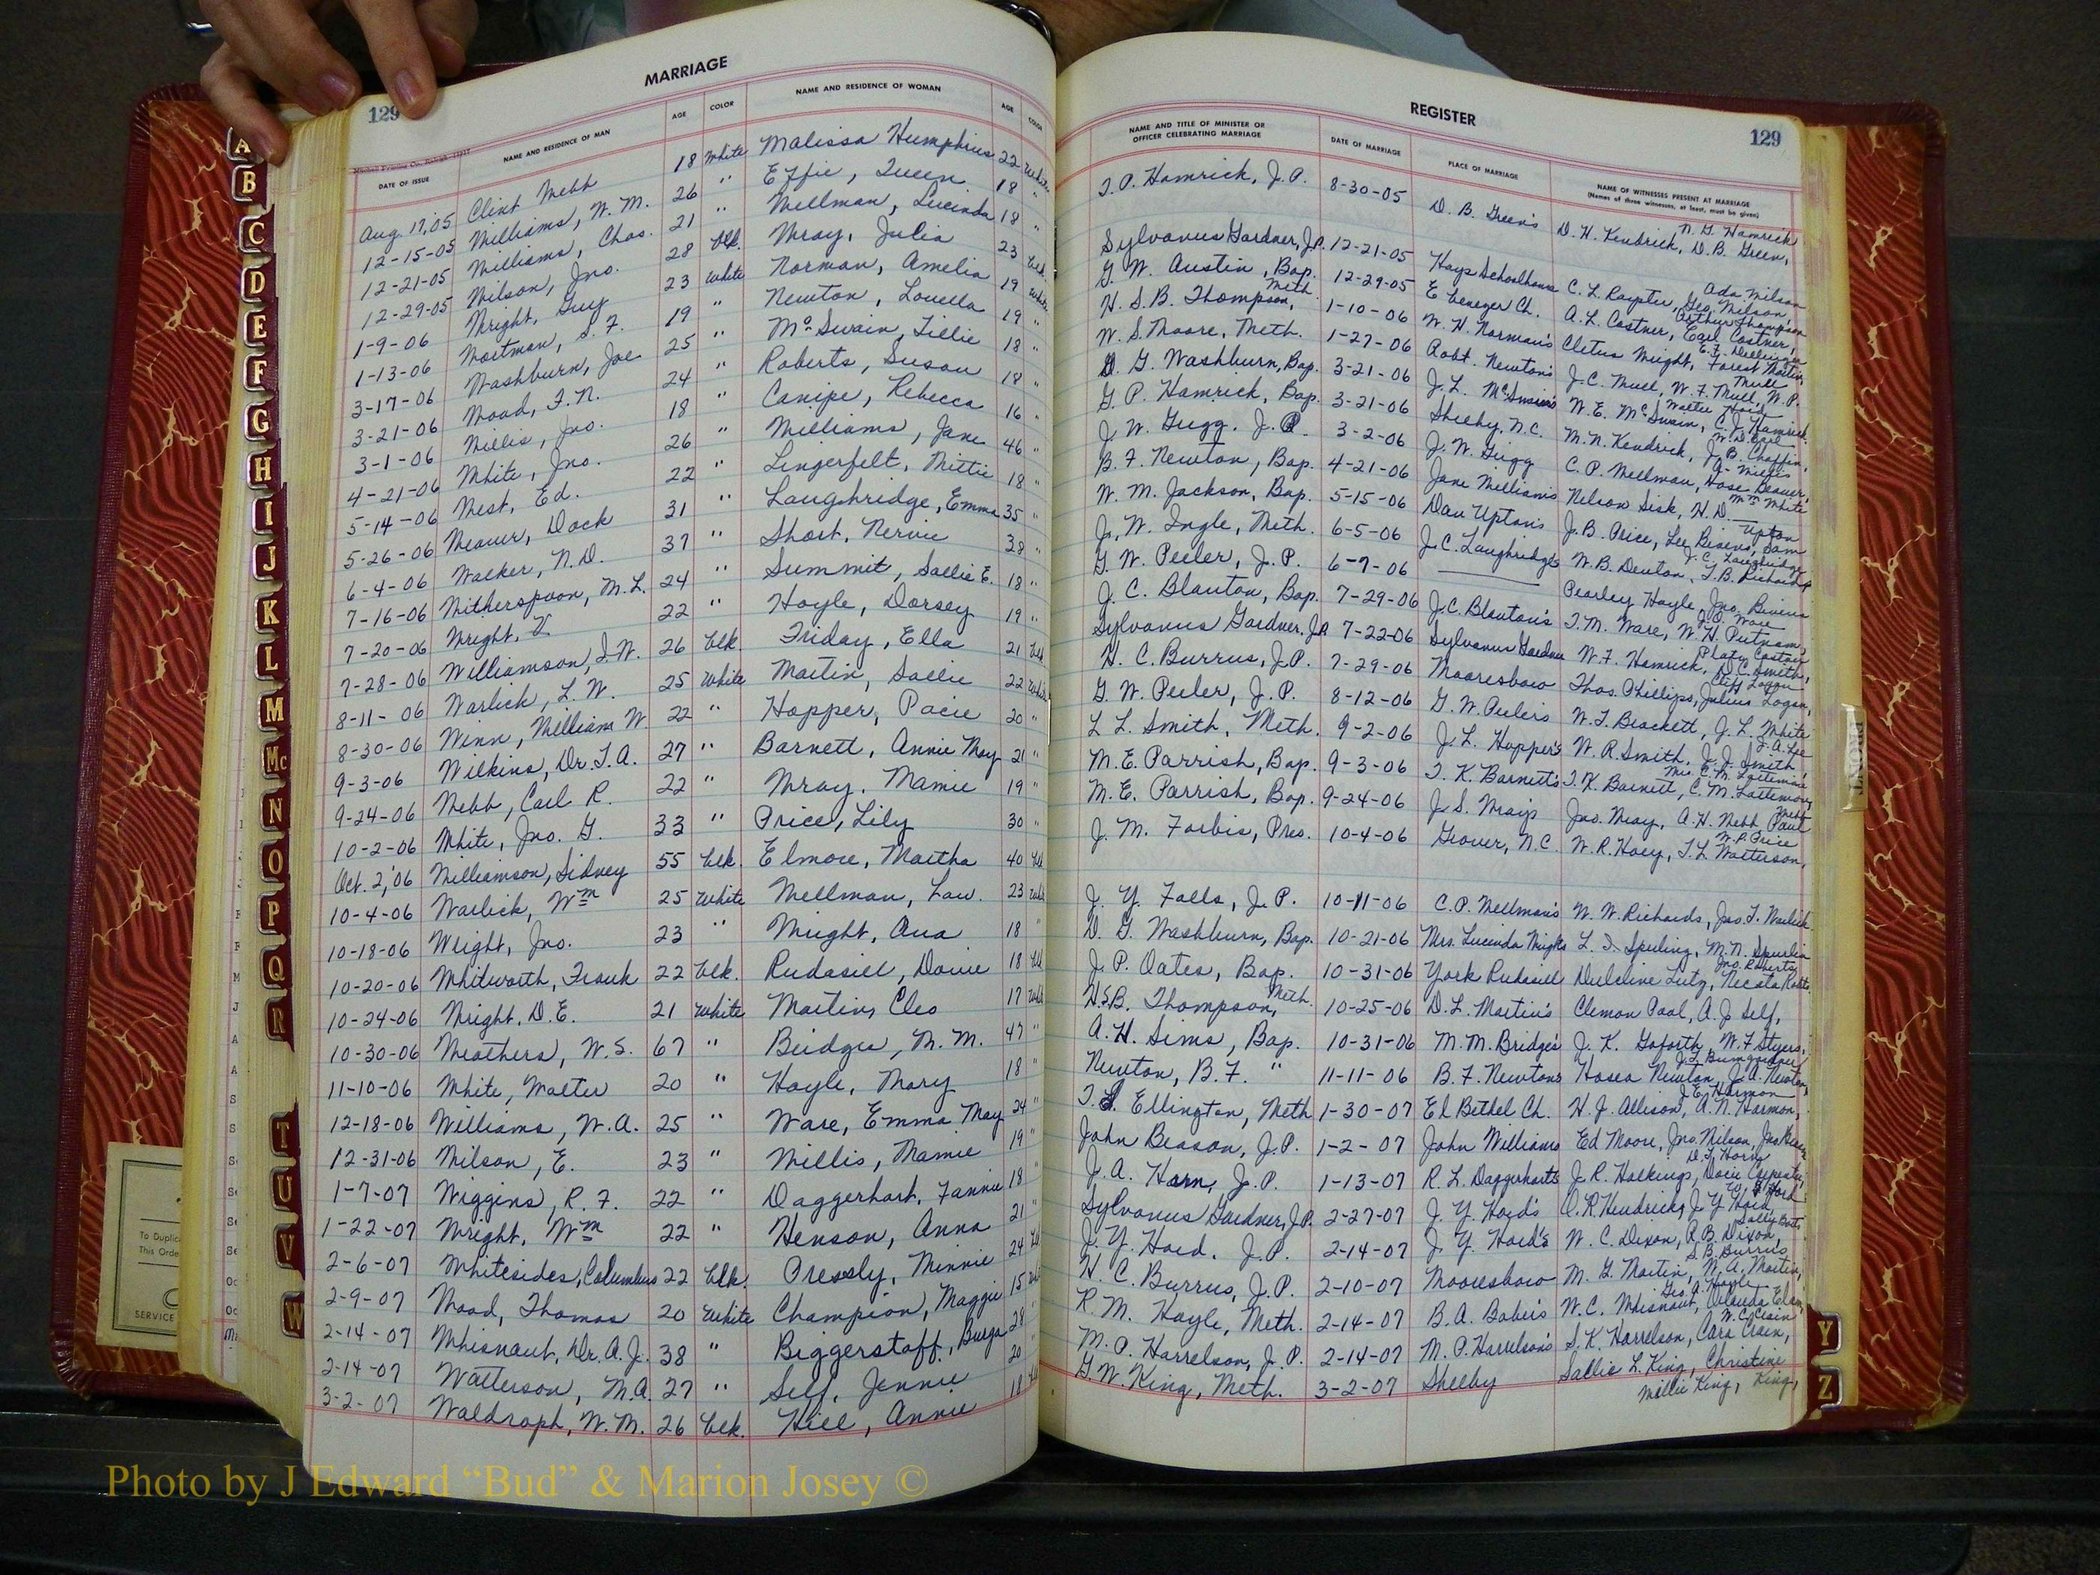 129 MARRIAGE
DATE OF ISSUE NAME AND RESIDENCE OF MAN AGE COLOR NAME AND RESIDENCE OF WOMAN AGE COLOR
Aug. 17, 05 Clint Webb 18 White Malissa Humphries 22 White
12-15-05 Williams, W. M. 26 " Effie, Queen 18 "
12-21-05 Williams, Chas. 21 " Wellman, Lucinda 18 "
12-29-05 Wilson, Jno. 28 blk. Wray, Julia 23 blk.
1-9-06 Wright, Guy 23 White Norman, Amelia 19 White
1-13-06 Wortman, S. F. 19 " Newton, Louella 19 "
3-17-06 Washburn, Joe 25 " McSwain, Lillie 18 "
3-21-06 Wood, F. N. 24 " Roberts, Susan 18 "
3-1-06 Willis, Jno. 18 " Canipe, Rebecca 16 "
4-21-06 White, Jno. 26 " Williams, Jane 46 "
5-14-06 West, Ed. 22 " Lingerfelt, Mittie 18 "
5-26-06 Weaver, Dock 31 " Laughridge, Emma 35 "
6-4-06 Walker, N. D. 37 " Short, Nervie 38 "
7-16-06 Witherspoon, M. L. 24 " Summit, Sallie E. 18 "
7-20-06 Wright, V 22 " Hoyle, Dorsey 19 "
7-28-06 Williamson, I. W. 26 blk. Friday, Ella 21 blk
8-11-06 Warlick, L. W. 25 White Martin, Sallie 22 White
8-30-06 Winn, William W. 22 " Hopper, Pacie 20 "
9-3-06 Wilkins, Dr. T. A. 27 " Barnett, Annie May 21 "
9-24-06 Webb, Carl R. 22 " Wray, Mamie 19 "
10-2-06 White, Jno. G. 33 " Price, Lily 30 "
Oct. 2, '06 Williamson, Sidney 55 blk. Elmore, Martha 40 blk
10-4-06 Warlick, Wm 25 White Wellman, Law. 23 White
10-18-06 Wright, Jno. 23 " Wright, Ava 18 "
10-20-06 Whitworth, Frank 22 blk. Rudasill, Dovie 18 blk
10-24-06 Wright, D. E. 21 White Martin, Cleo 17 White
10-30-06 Weathers, W. S. 67 " Bridges, M. M. 47 "
11-10-06 White, Walter 20 " Hoyle, Mary 18 "
12-18-06 Williams, W. A. 25 " Ware, Emma May 24 "
12-31-06 Wilson, E. 23 " Willis, Mamie 19 "
1-7-07 Wiggins, R. F. 22 " Daggerhart, Fannie 18 "
1-22-07 Wright, Wm 22 " Henson, Anna 21 "
2-6-07 Whitesides, Columbus 22 blk. Pressly, Minnie 24 blk
2-9-07 Wood, Thomas 20 White Champion, Maggie 15 White
2-14-07 Whisnant, Dr. A. J. 38 " Biggerstaff, Burga 28 "
2-14-07 Watterson, M. A. 27 " Self, Jennie 20
3-2-07 Waldroph, W. M. 26 blk. Hill, Annie 18 blk
REGISTER 129
NAME AND TITLE OF MINISTER OR OFFICER CELEBRATING MARRIAGE DATE OF MARRIAGE PLACE OF MARRIAGE NAME OF WITNESSES PRESENT AT MARRIAGE
(Names of three witnesses, at least, must be given)
T. P. Hamrick, J. P. 8-30-05 D. B. Green's D. H. Kendrick, D. B. Green, N. G. Hamrick
Sylvanus Gardner, J.P. 12-21-05 Hoys Schoolhouse C. L. Geo. Wilson, Ada Wilson
G. W. Austin, Bap. 12-29-05 Ebenezer Ch. A. L. Costner, Earl Costner, Arthur Thompson
H. S. B. Thompson, Meth. 1-10-06 W. H. Norman's Cletus Wright, Forest Martin, E. F. Dellinger
W. S. Moore, Meth. 1-27-06 Robt. Newton's J. C. Mull, W. F. Mull, W. P. Mull
D. G. Washburn, Bap. 3-21-06 J. L. McSwain's W. E. McSwain, C. J. Hamrick, Walter Hord
G. P. Hamrick, Bap. 3-21-06 Shelby, N.C. M. N. Kendrick, J. B. Chaffin,
J. W. Gugg. J. P. 3-2-06 J. W. Gugg C. P. Wellman, Hose Deaver,
B. F. Newton, Bap. 4-21-06 Jane Williams Nelson Sisk, H. D. Wm White
W. M. Jackson, Bap. 5-15-06 Dav Upton's J. B. Price, Lee Bivens, Sam Upton
J. W. Ingle, Meth. 6-5-06 J. C. Laughridge's W. B. Denton, T. B. Richards, J. C. Laughridge
G. W. Peeler, J. P. 6-7-06 Pearley Hoyle, Jno. Bivens
J. C. Blanton, Bap. 7-29-06 J. C. Blanton's T. M. Ware, W. H. Putnam, J. O. Ware
Sylvanus Gardner, J.P. 7-22-06 Sylvanus Gardner W. F. Hamrick, D. C. Smith, Plato Costner
H. C. Burrus, J. P. 7-29-06 Mooresboro Thos. Phillips, Julius Logan, Cliff Logan
G. W. Peeler, J. P. 8-12-06 G. W. Peeler's W. T. Brackett, J. L. White
L. L. Smith, Meth. 9-2-06 J. L. Hopper's W. R. Smith, J. J. Smith, J. A. Lee
M. E. Parrish, Bap. 9-3-06 T. K. Barnett's T. K. Barnett, C. M. Lattimore, Mrs. C. M. Lattimore
M. E. Parrish, Bap. 9-24-06 J. S. Wray's Jno. Wray, A. H. Webb Paul Webb
J. M. Forbis, Pres. 10-4-06 Grover, N.C. W. R. Hoey, T. L. Watterson, W. P. Price
J. Y. Falls, J. P. 10-11-06 C. P. Wellman's W. W. Richards, Jno. T. Warlick
D. G. Washburn, Bap. 10-21-06 Mrs. Lucinda Wright's L. D. Spurling, M. N. Spurlin
J. P. Oates, Bap. 10-31-06 York Rudasill Dulcline Lutz, Jno. Roberts
H.S.B. Thompson, Meth. 10-25-06 D. L. Martin's Clemon Pool, A. J. Self,
A. H. Sims, Bap. 10-31-06 M. M. Bridge's J. K. Goforth, W. F. Styers, J. F. Bumgardner
Newton, B. F. " 11-11-06 B. F. Newtons Hosea Newton, J. A. Newton,
T. L. Ellington, Meth 1-30-07 El Bethel Ch. H. J. Allison, A. N. Harmon, J. E. Harmon
John Beason, J. P. 1-2-07 John Williams Ed Moore, Jno. Wilson, Jno Beason
J. A. Horn, J. P. 1-13-07 R. L. Daggerhart's J. R. Hawkins, Dovie Carpenter, D. F. Horn
Sylvanus Gardner, J.P. 2-27-07 J. Y. Hord's O. R. Hendricks, J. Y. Hord,
J. Y. Hord, J. P. 2-14-07 J. Y. Hord's W. C. Dixon, R. B. Dixon,
H. C. Burrus, J. P. 2-10-07 Mooresboro M. G. Martin, N. A. Martin, S. B. Burrus
R. M. Hoyle, Meth. 2-14-07 B. A. Baber's W. C. Whisnant, Olanda Elam, Geo. A. Hoyle
M. P. Harrelson, J. P. 2-14-07 M. P. Harrelson's S. K. Harrelson, Cara Crain, W. C. Crain
G. W. King, Meth. 3-2-07 Shelby Sallie L. King, Christine King,
Millie King,
A
B
C
D
E
F
G
H
I
J
K
L
M
Mc
N
O
P
Q
R
T
U
V
W
Y
Z
To Duplic
This Orde
SERVICE
Photo by J Edward “Bud” & Marion Josey ©